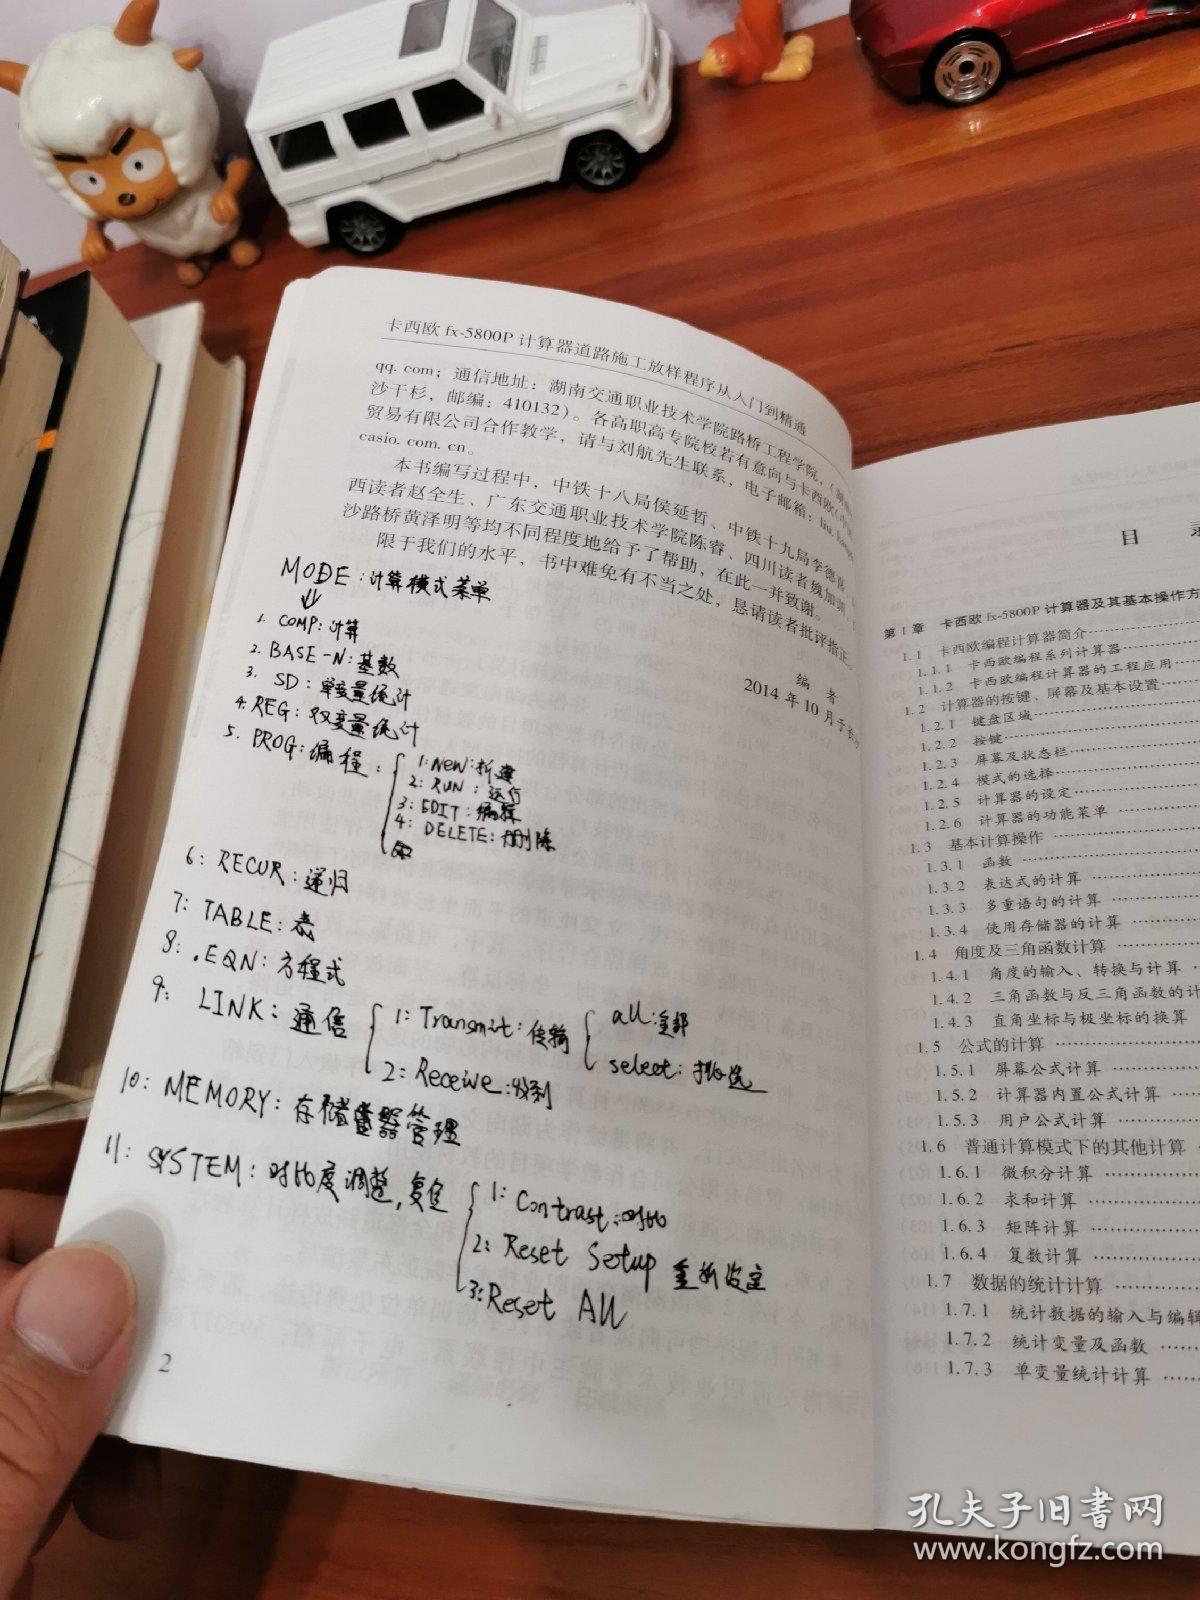 卡西欧 fx-5800P 计算器道路施工放样程序从入门到精通
qq. com；通信地址：湖南交通职业技术学院路桥工程学院，
沙干杉，邮编：410132）。各高职高专院校若有意向与卡西欧
贸易有限公司合作教学，请与刘航先生联系，电子邮箱：
casio. com. cn。
本书编写过程中，中铁十八局侯延哲、中铁十九局李德
西读者赵全生、广东交通职业技术学院陈睿、四川读者魏加训
沙路桥黄泽明等均不同程度地给予了帮助，在此一并致谢。
限于我们的水平，书中难免有不当之处，恳请读者批评指正。
编 者
2014 年 10 月于长
MODE：计算模式菜单
⇓
1. COMP：计算
2. BASE-N：基数
3. SD：单变量统计
4. REG：双变量统计
5. PROG：编程：
1: NEW：新建
2: RUN：运行
3: EDIT：编辑
4: DELETE：删除
6: RECUR：递归
7: TABLE：表
8: . EQN：方程式
9: LINK：通信
1: Transmit：传输
all：全部
select：挑选
2: Receive：收到
10: MEMORY：存储器管理
11: SYSTEM：对比度调整，复位
1: Contrast：对比
2: Reset Setup 重新设定
3: Reset All
2
目 录
第 1 章 卡西欧 fx-5800P 计算器及其基本操作方
1.1 卡西欧编程计算器简介
1.1.1 卡西欧编程系列计算器
1.1.2 卡西欧编程计算器的工程应用
1.2 计算器的按键、屏幕及基本设置
1.2.1 键盘区域
1.2.2 按键
1.2.3 屏幕及状态栏
1.2.4 模式的选择
1.2.5 计算器的设定
1.2.6 计算器的功能菜单
1.3 基本计算操作
1.3.1 函数
1.3.2 表达式的计算
1.3.3 多重语句的计算
1.3.4 使用存储器的计算
1.4 角度及三角函数计算
1.4.1 角度的输入、转换与计算
1.4.2 三角函数与反三角函数的计
1.4.3 直角坐标与极坐标的换算
1.5 公式的计算
1.5.1 屏幕公式计算
1.5.2 计算器内置公式计算
1.5.3 用户公式计算
1.6 普通计算模式下的其他计算
1.6.1 微积分计算
1.6.2 求和计算
1.6.3 矩阵计算
1.6.4 复数计算
1.7 数据的统计计算
1.7.1 统计数据的输入与编辑
1.7.2 统计变量及函数
1.7.3 单变量统计计算
孔夫子旧书网
www.kongfz.com